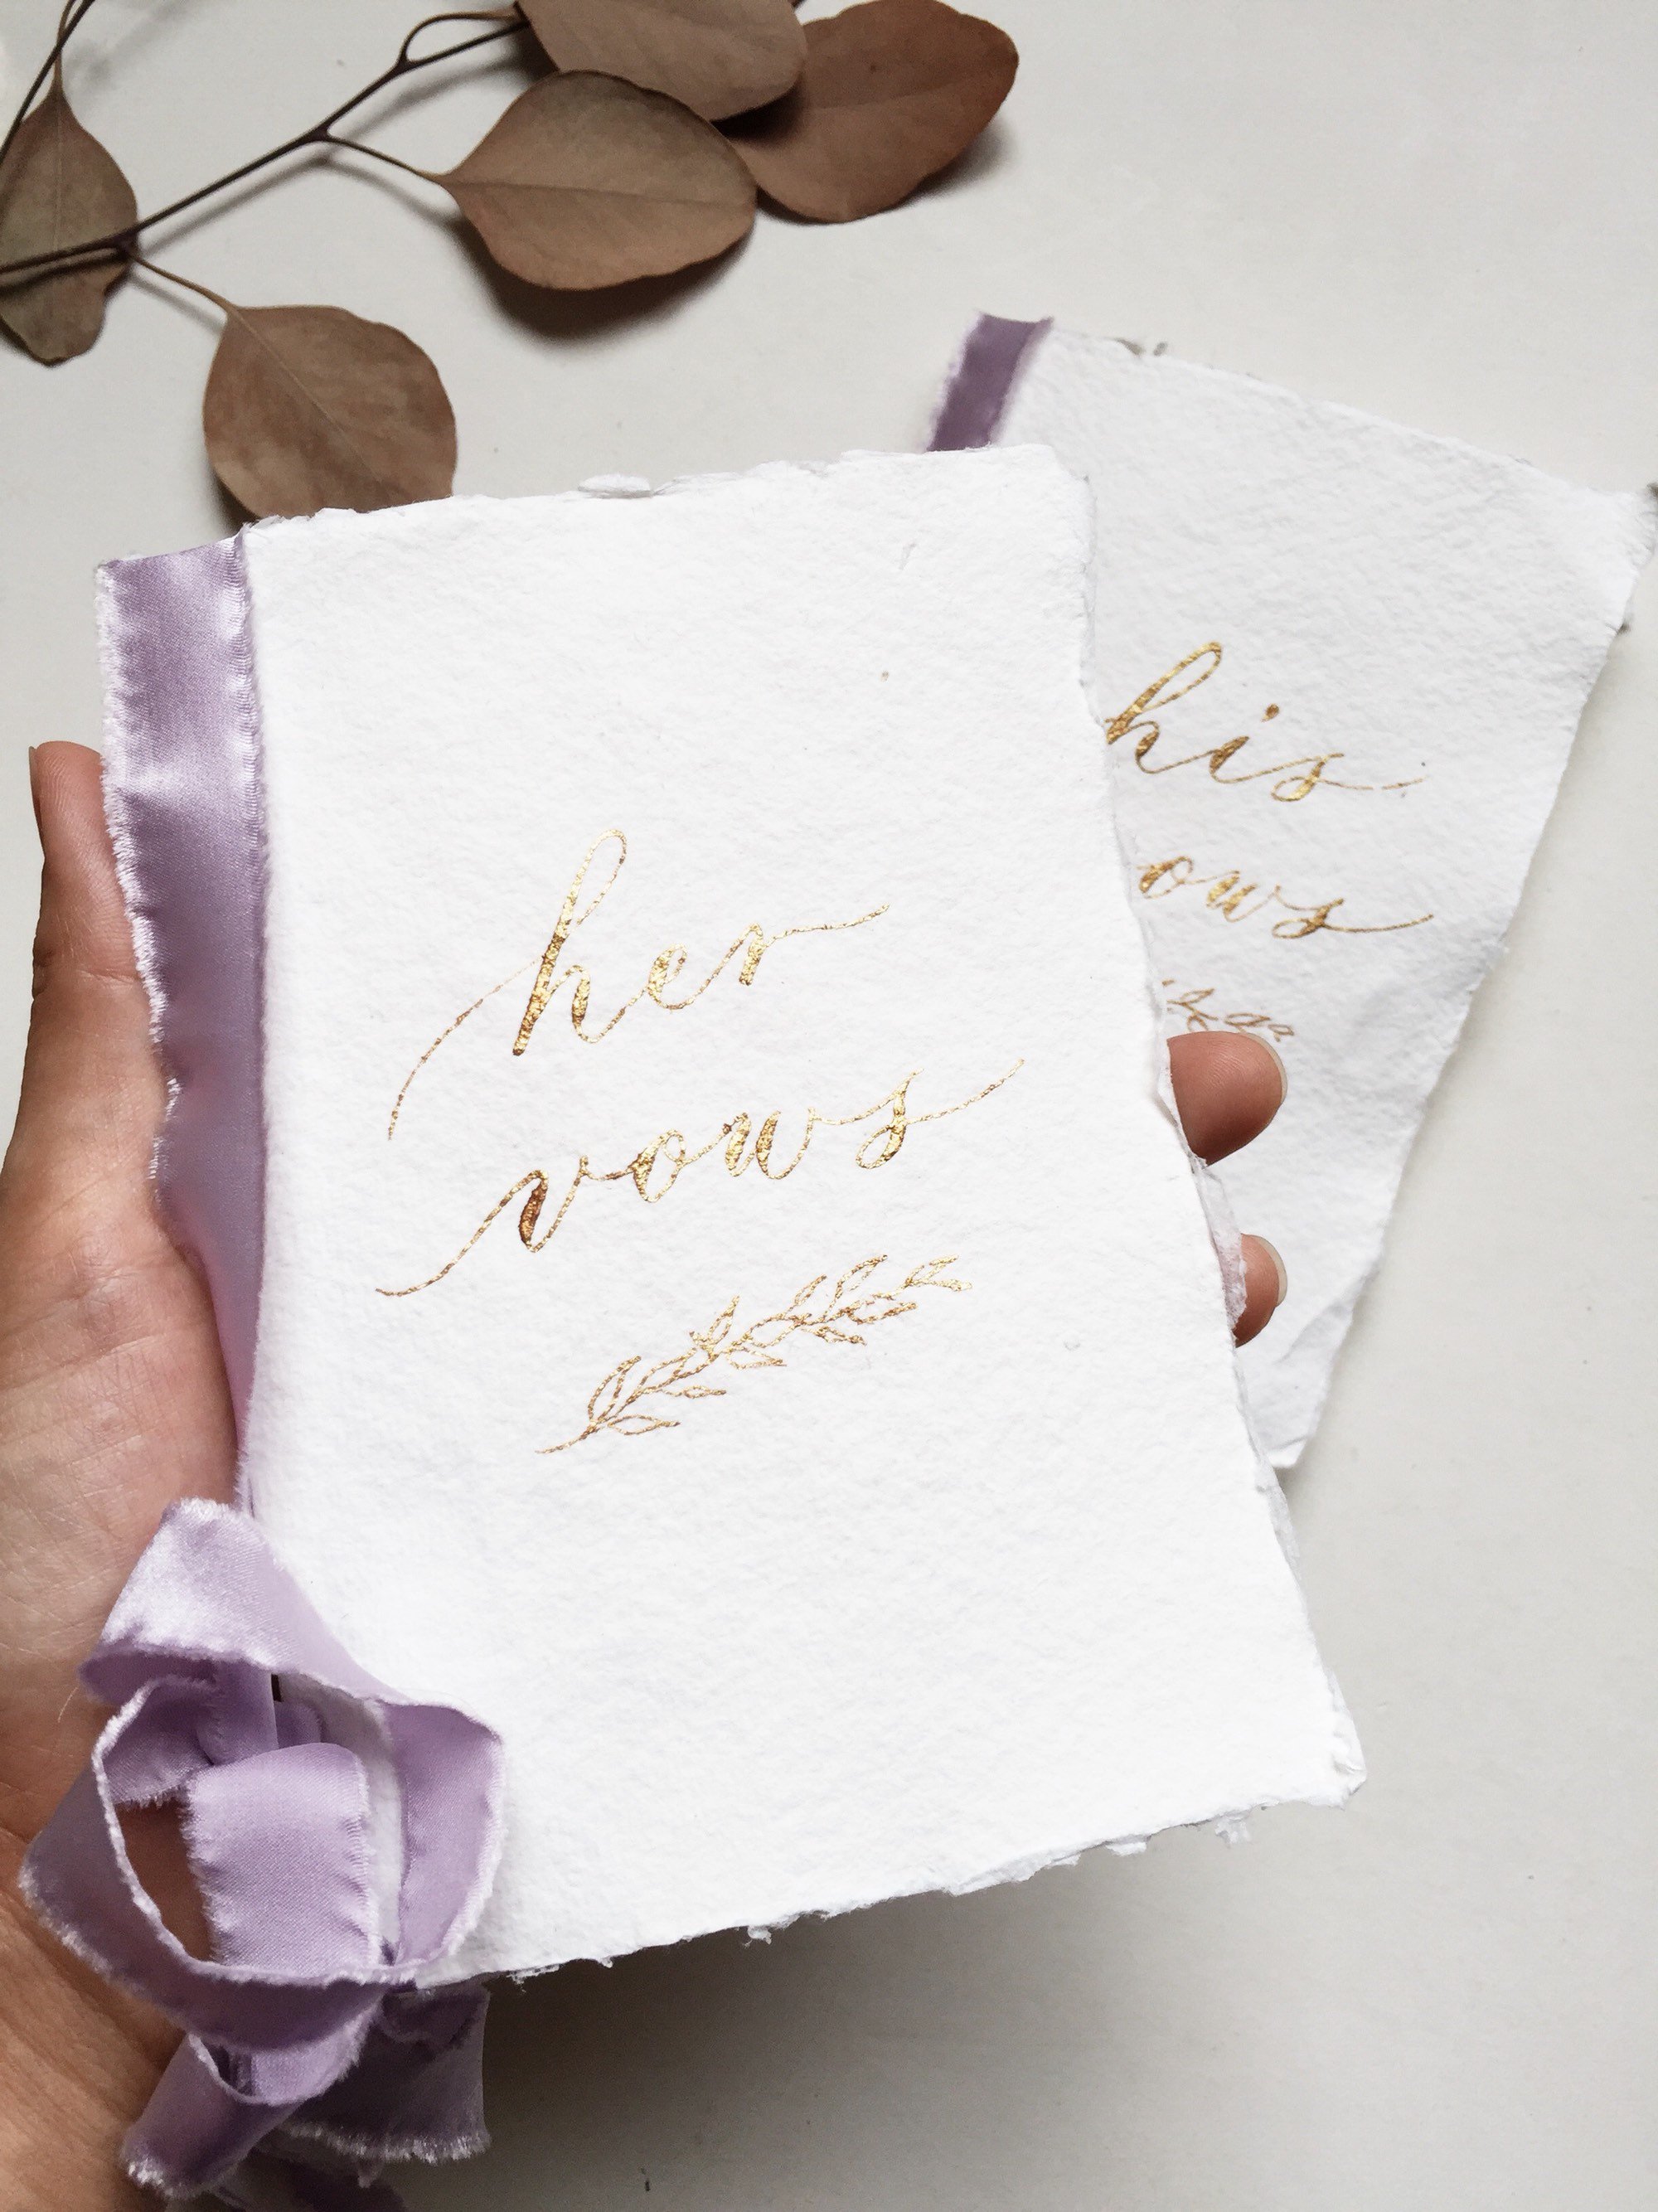 her
vows
his
ows